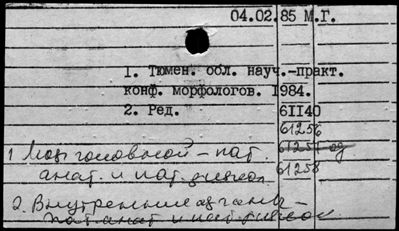 04.02.85 М.Г.
1. Тюмен. обл. науч.-практ.
конф. морфологов. 1984.
2. Ред. 61140
61256
1 Мозг головной – пат. 61257
анат. и пат. физиол. 61258
2. Внутренние органы –
пат. анат и пат. физиол